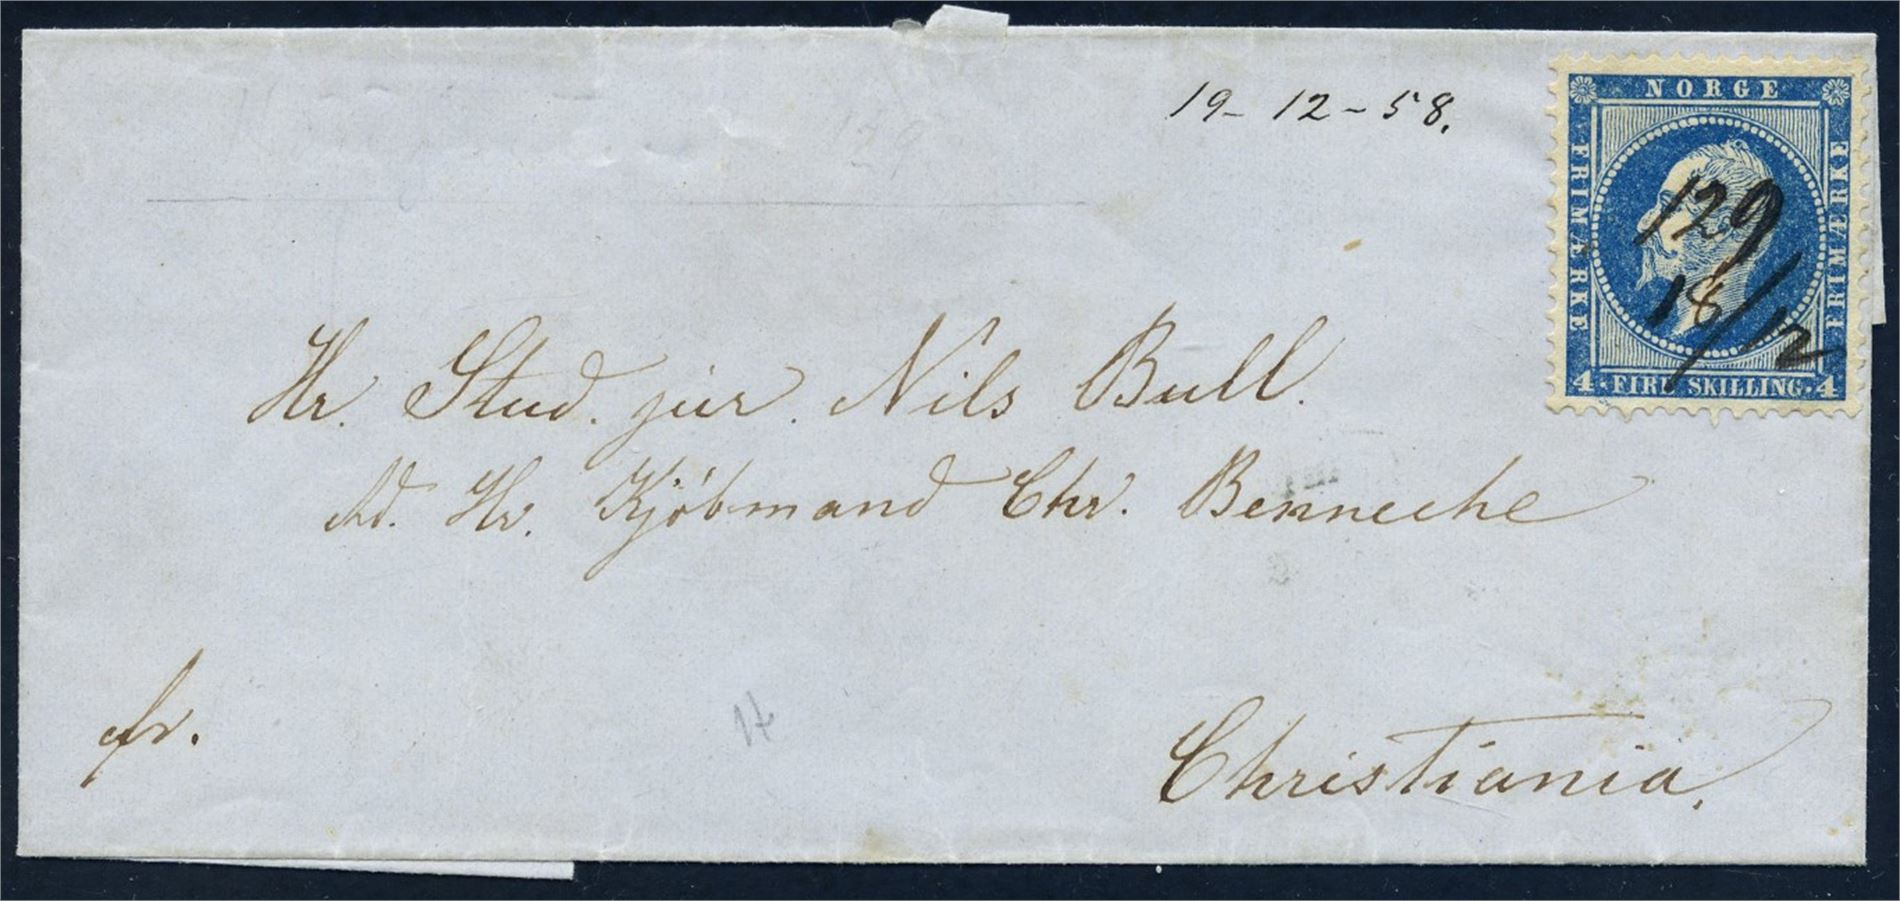 19-12-58.
NORGE
FRIMÆRKE
FRIMÆRKE
129
18/12
4 · FIRE SKILLING · 4
Hr. Stud. jur. Nils Bull.
Ad. Hr. Kjöbmand Chr. Benneche
fr.
Christiania.